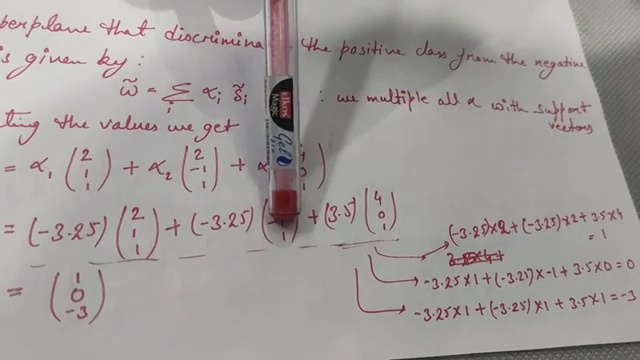 that discrimina the positive class from the negative
is given by:
w̃ = Σ αᵢ s̃ᵢ : we multiple all α with support
i vectors
ting the values we get
= α₁ (2 1 1) + α₂ (2 -1 1) +
= (-3.25) (2 1 1) + (-3.25) ( 1) + (3.5) (4 0 1)
(-3.25)×2 + (-3.25)×2 + 3.5×4
= 1
-3.25×1 + (-3.25)×-1 + 3.5×0 = 0
= (1 0 -3)
-3.25×1 + (-3.25)×1 + 3.5×1 = -3
elkos
Magic
Gel